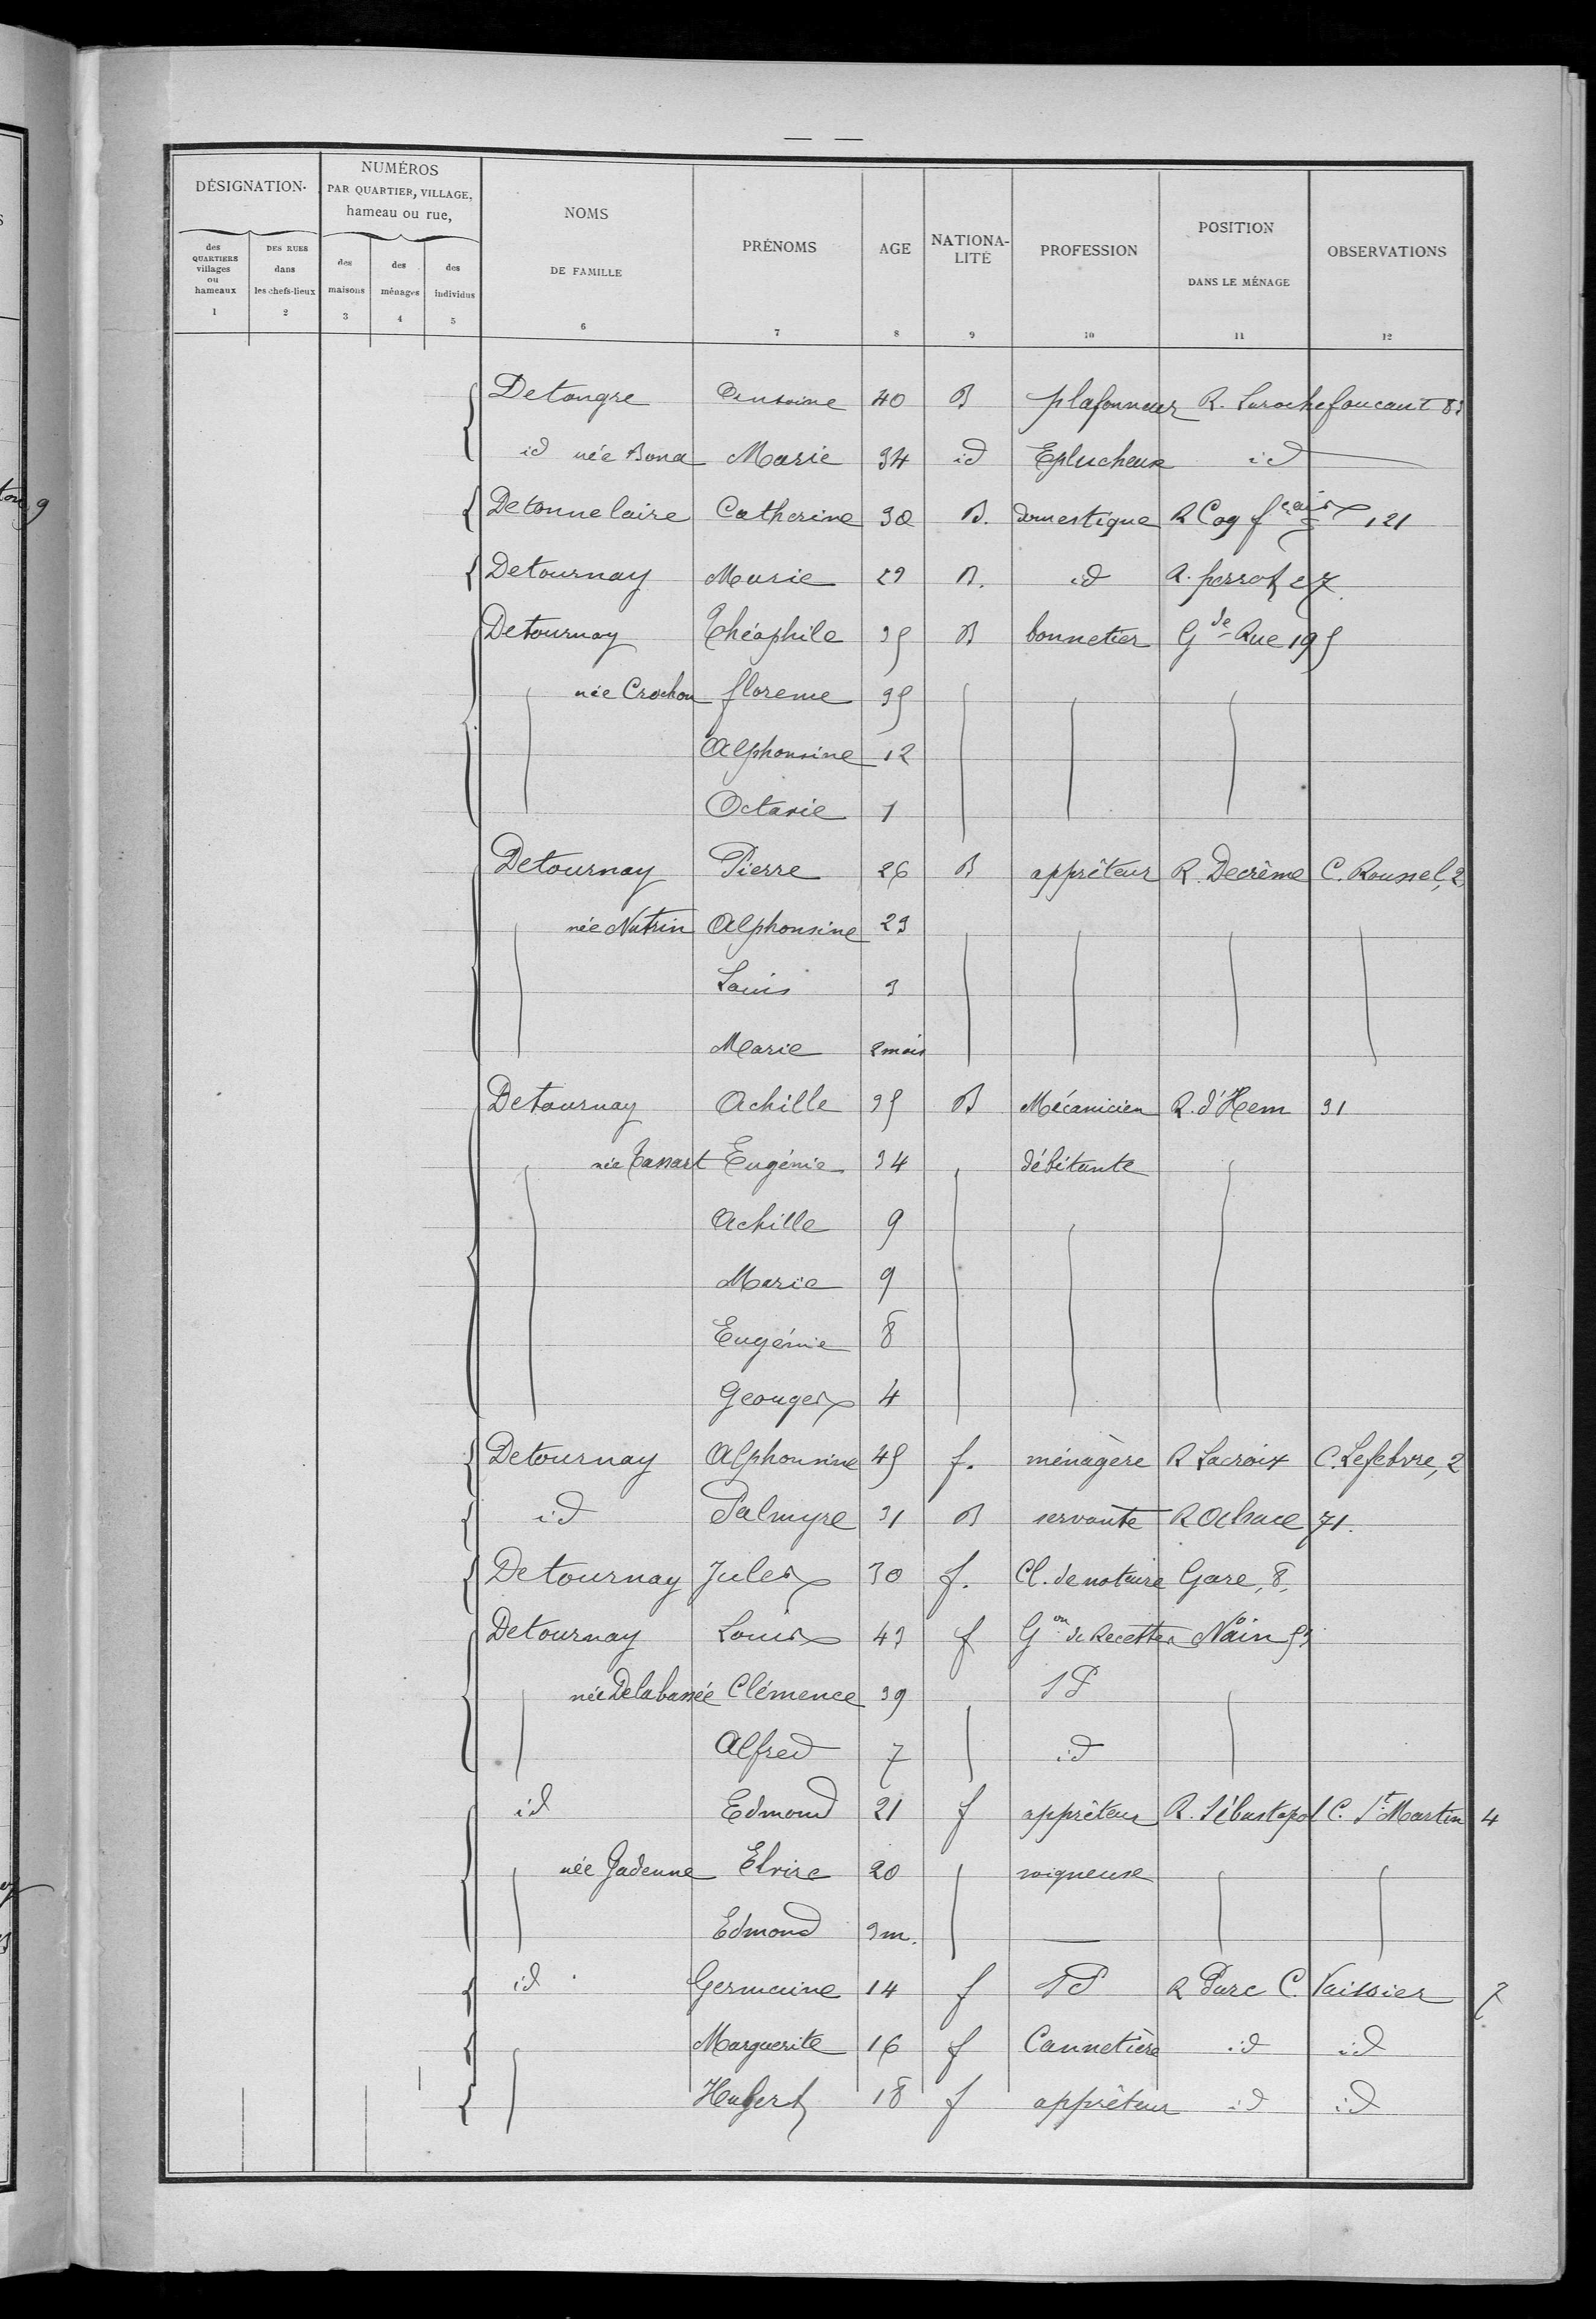 — —
DÉSIGNATION
NUMÉROS
PAR QUARTIER, VILLAGE,
hameau ou rue,
NOMS
DE FAMILLE
PRÉNOMS
AGE
NATIONA-
LITÉ
PROFESSION
POSITION
DANS LE MÉNAGE
OBSERVATIONS
des
QUARTIERS
villages
ou
hameaux
DES RUES
dans
les chefs-lieux
des
maisons
des
ménages
des
individus
1 2 3 4 5 6 7 8 9 10 11 12
Detongre 40 B plafonneur R. Larochefoucaut 83
id née Bona Marie 34 id Eplucheuse id
Detonnelaire Catherine 30 B. domestique R Coq fçais 121
Detournay Marie 29 B. id R. perrot 27
Detournay Théophile 35 B bonnetier Gde Rue 195
née Crochon florence 35
Alphonsine 12
Octavie 1
Detournay Pierre 26 B apprêteur R. Decrême C. Roussel, 2
née Nutrin Alphonsine 23
Louis 3
Marie 2 mois
Detournay Achille 35 B Mécanicien R. d'Hem 31
née Tassart Eugénie 34 débitante
Achille 9
Marie 9
Eugénie 8
Georges 4
Detournay Alphonsine 45 f. ménagère R Lacroix C. Lefebvre, 2
id Palmyre 31 B servante R Alsace 71.
Detournay Jules 30 f. Cl. de notaire Gare, 8,
Detournay Louis 43 f Gon de Recettes Nain 53
née Delabassée Clémence 39 SP
Alfred 7 id
id Edmond 21 f apprêteur R. Sébastopol C. St Martin 4
née Gadenne Elvire 20 soigneuse
Edmond 3 m. —
id Germaine 14 f SP R Parc C. Vaissier 7
Marguerite 16 f Cannetière id id
Hubert 18 f apprêteur id id